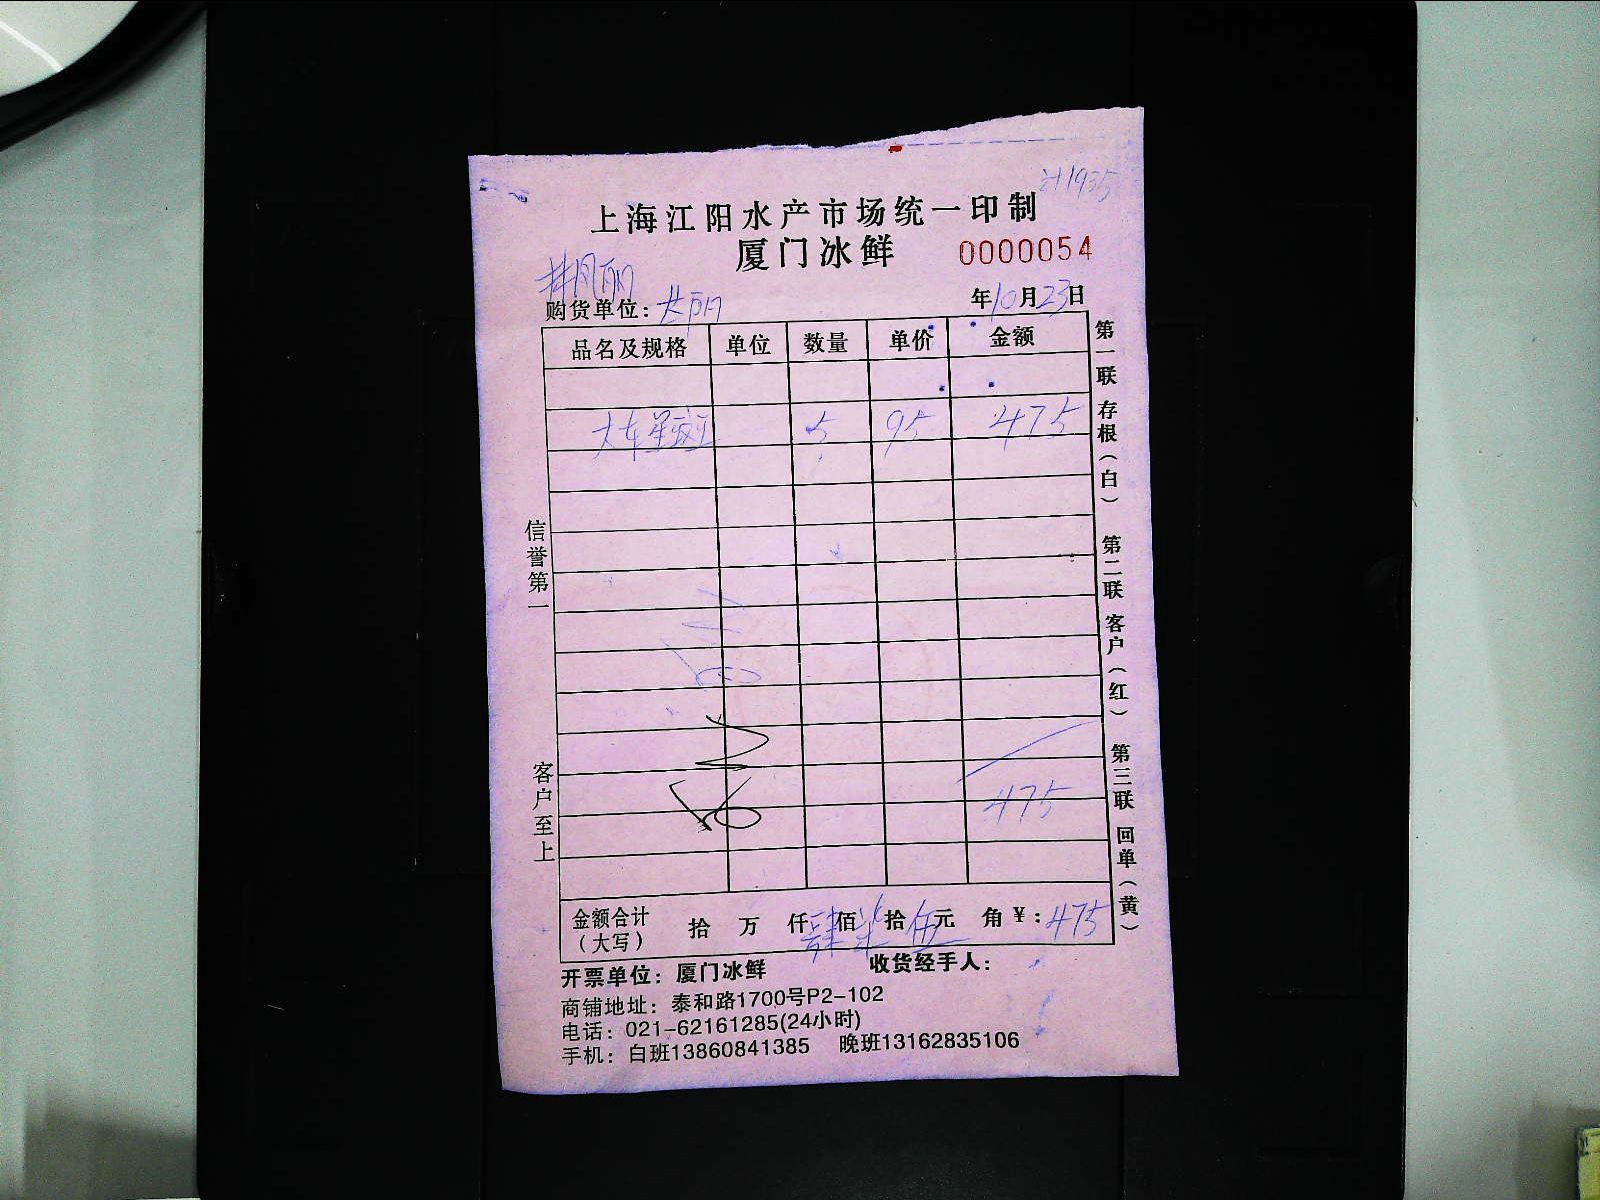 计1935
上海江阳水产市场统一印制
厦门冰鲜 0000054
井凤丽
购货单位： 年10月23日
品名及规格 单位 数量 单价 金额
大东星斑 5 95 475
475
金额合计（大写） 拾 万 仟肆佰柒拾伍元 角 ¥：475
开票单位：厦门冰鲜 收货经手人：
商铺地址：泰和路1700号P2-102
电话：021-62161285(24小时)
手机：白班13860841385 晚班13162835106
信誉第一
客户至上
第一联 存根（白） 第二联 客户（红） 第三联 回单（黄）